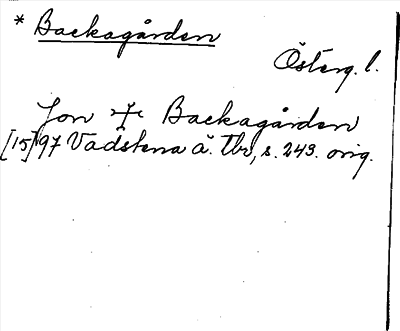 * Backagården
Österg. l.
Jon i Backagården
[15]97 Vadstena ä. Tbr, s. 243. orig.